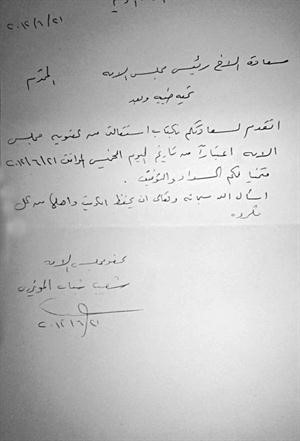 ٢٠١٢/٦/٢١
سعادة الاخ رئيس مجلس الامه المحترم
تحيه طيبه وبعد
اتقدم لسعادتكم بكتاب استقالتي من عضوية مجلس
الامه اعتباراً من تاريخ اليوم الخميس الموافق ٢٠١٢/٦/٢١
متمنيا لكم السداد والتوفيق .
اسأل الله سبحانه وتعالى ان يحفظ الكويت واهلها من كل
مكروه
عضو مجلس الامه
شعيب شباب المويزري
٢٠١٢/٦/٢١